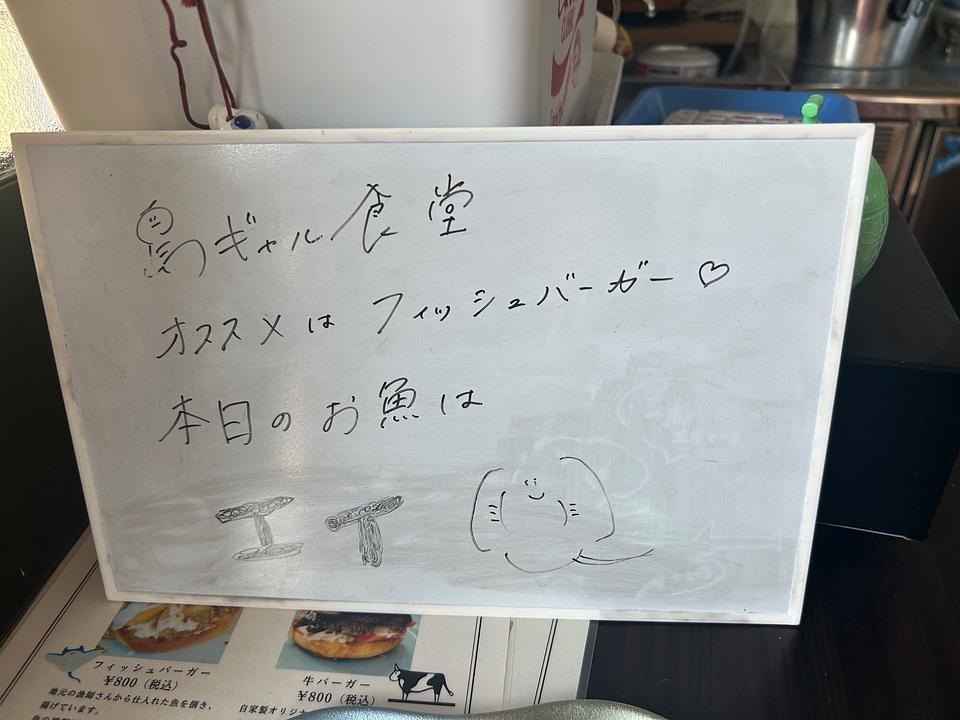 島ギャル食堂
オススメは フィッシュバーガー♡
本日のお魚は
エイ
フィッシュバーガー
¥800（税込）
地元の漁師さんから仕入れた魚を捌き、
揚げています。
牛バーガー
¥800（税込）
自家製オリジナ